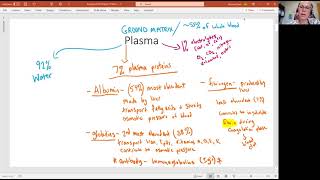 GROUND MATRIX
~55% of whole blood
Plasma
92%
Water
1%
electrolytes
7% plasma proteins
- Albumin - (54%) most abundant
made by liver
transport fatty acids + steroids
osmotic pressure of blood
- globulins - 2nd most abundant (38%)
transport iron, lipids, vitamins A, D, E, K
contribute to osmotic pressure
* Antibody - Immunoglobulins (Ig) *
- Fibrinogen - produced by
liver
least abundant (7%)
converts to insoluble
fibrin during